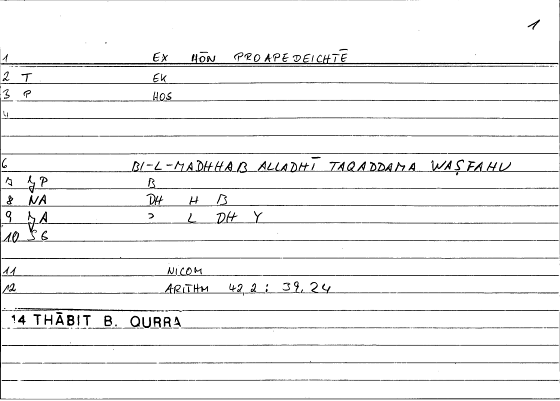 1
1 EX HŌN PROAPEDEICHTĒ
2 T EK
3 P HOS
4
6 BI-L-MADHHAB ALLADHĪ TAQADDAMA WAṢFAHU
P B
8 NA DH H B
9 A ʾ L DH Y
10 SG
11 NICOM
12 ARITHM 42,2 : 39,24
14 THĀBIT B. QURRA